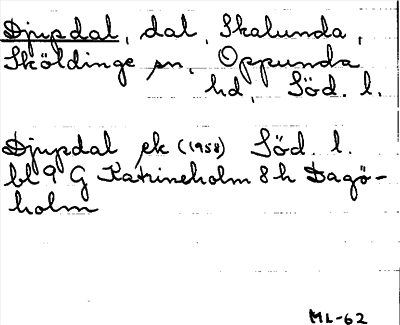 Djupdal, dal, Skalunda,
Sköldinge sn, Oppunda
hd, Söd. l.
Djupdal ek (1958) Söd. l.
bl 9 G Katrineholm 8 h Dagö-
holm
ML-62